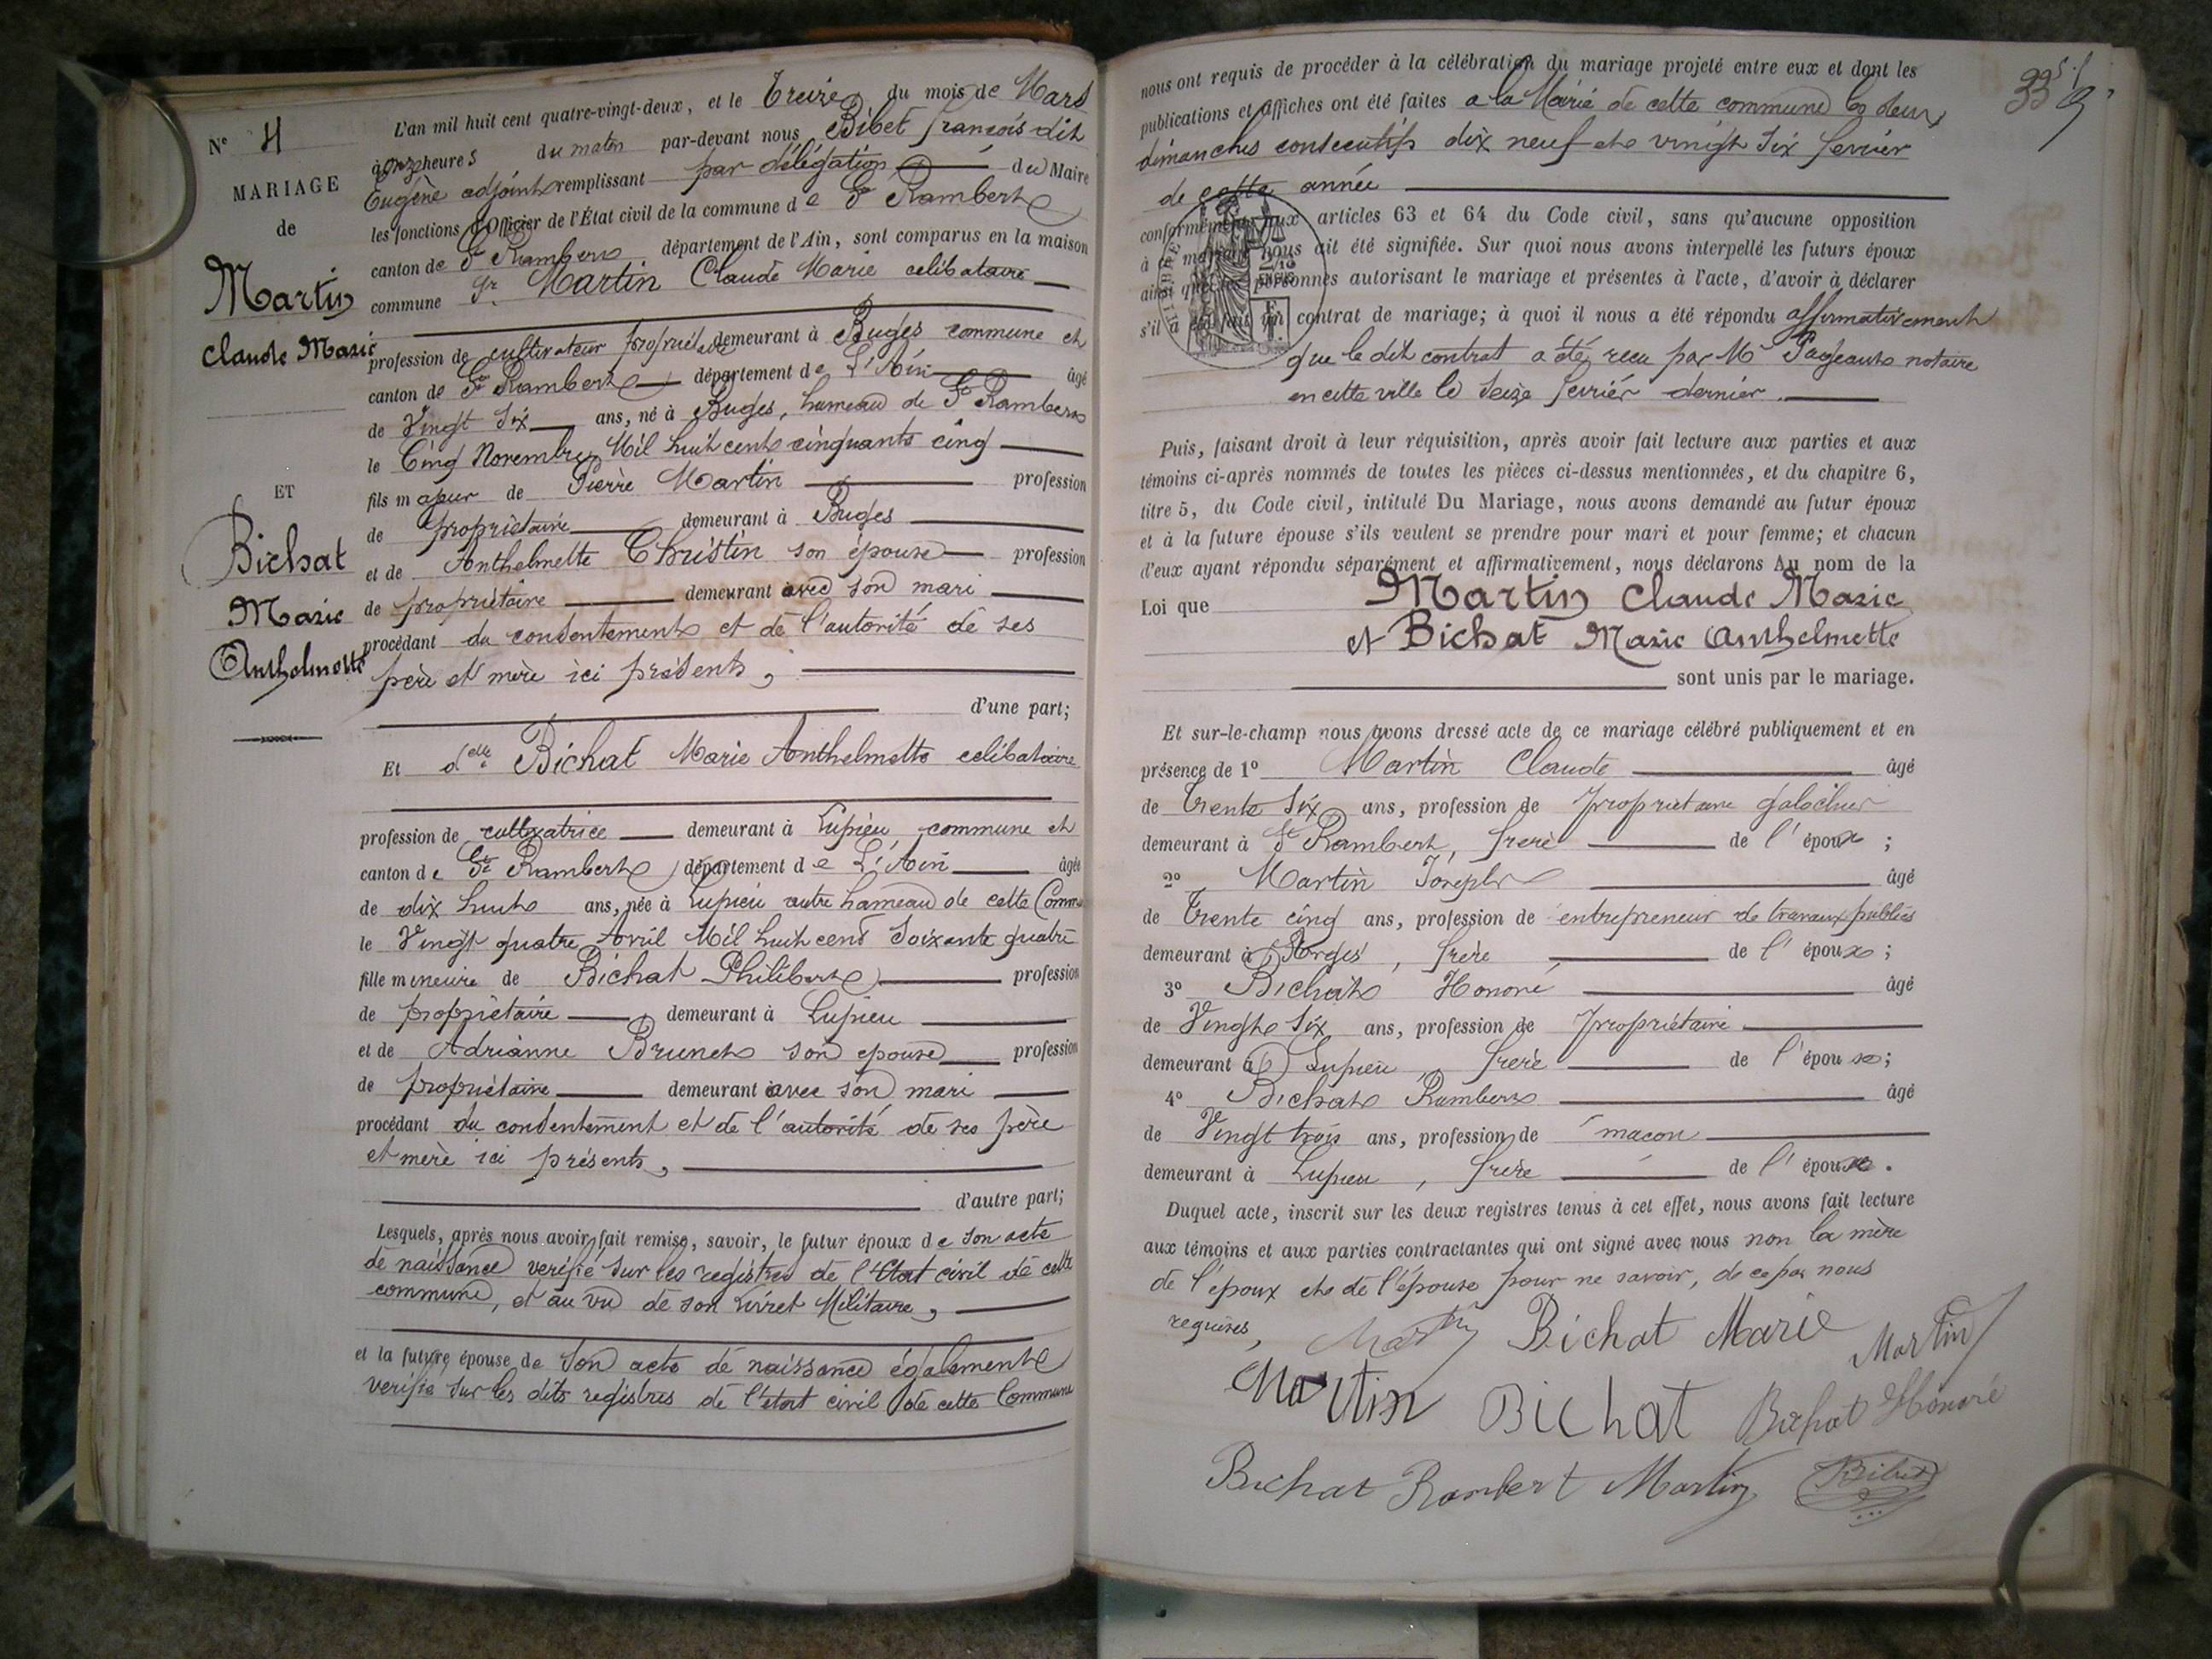 N° 4
MARIAGE
de
Martin
Claude Marie
ET
Bichat
Marie
Anthelmette
L'an mil huit cent quatre-vingt-deux, et le Treize du mois de Mars
à onze heures du matin par-devant nous Bibet françois dit
Eugène adjoint remplissant par délégation du Maire
les fonctions d'Officier de l'État civil de la commune de St Rambert
canton de St Rambert département de l'Ain, sont comparus en la maison
commune Sr Martin Claude Marie celibataire
profession de cultivateur propriétaire demeurant à Buges commune et
canton de St Rambert département de L'Ain âgé
de Vingt Six ans, né à Buges, hameau de St Rambert
le Cinq Novembre Mil huit cent cinquante cinq
fils majeur de Pierre Martin profession
de propriétaire demeurant à Buges
et de Anthelmette Christin son épouse profession
de propriétaire demeurant avec son mari
procédant du consentement et de l'autorité de ses
père et mère ici présents,
d'une part;
Et delle Bichat Marie Anthelmette celibataire
profession de cultivatrice demeurant à Lupieu commune et
canton de St Rambert département de L'Ain âgée
de dix huit ans, née à Lupieu autre hameau de cette Comme
le Vingt quatre Avril Mil huit cent soixante quatre
fille mineure de Bichat Philibert profession
de propriétaire demeurant à Lupieu
et de Adrianne Brunet son epouse profession
de propriétaire demeurant avec son mari
procédant du consentement et de l'autorité de ses père
et mère ici présents,
d'autre part;
Lesquels, après nous avoir fait remise, savoir, le futur époux de son acte
de naissance verifié sur les registres de l'Etat civil de cette
commune, et au vu de son Livret Militaire,
et la future épouse de son acte de naissance également
verifié sur les dits registres de l'état civil de cette Commune
335.
nous ont requis de procéder à la célébration du mariage projeté entre eux et dont les
publications et affiches ont été faites a la Mairie de cette commune les deux
dimanches consecutifs dix neuf et vingt six fevrier
de cette année
conformément aux articles 63 et 64 du Code civil, sans qu'aucune opposition
à ce mariage nous ait été signifiée. Sur quoi nous avons interpellé les futurs époux
ainsi que les personnes autorisant le mariage et présentes à l'acte, d'avoir à déclarer
s'il a été fait un contrat de mariage; à quoi il nous a été répondu affirmativement
que le dit contrat a été recu par Me Pageaut notaire
en cette ville le seize fevrier dernier.
Puis, faisant droit à leur réquisition, après avoir fait lecture aux parties et aux
témoins ci-après nommés de toutes les pièces ci-dessus mentionnées, et du chapitre 6,
titre 5, du Code civil, intitulé Du Mariage, nous avons demandé au futur époux
et à la future épouse s'ils veulent se prendre pour mari et pour femme; et chacun
d'eux ayant répondu séparément et affirmativement, nous déclarons Au nom de la
Loi que Martin Claude Marie
et Bichat Marie Anthelmette
sont unis par le mariage.
Et sur-le-champ nous avons dressé acte de ce mariage célébré publiquement et en
présence de 1° Martin Claude âgé
de Trente Six ans, profession de propriétaire galochier
demeurant à St Rambert, frère de l'époux ;
2° Martin Joseph âgé
de Trente cinq ans, profession de entrepreneur de travaux publics
demeurant à Torgis, frère de l'époux ;
3° Bichat Honoré âgé
de Vingt Six ans, profession de propriétaire
demeurant à Lupieu, frère de l'épouse;
4° Bichat Rambert âgé
de Vingt trois ans, profession de macon
demeurant à Lupieu, frère de l'épouse.
Duquel acte, inscrit sur les deux registres tenus à cet effet, nous avons fait lecture
aux témoins et aux parties contractantes qui ont signé avec nous non la mère
de l'époux et de l'épouse pour ne savoir, de ce par nous
requises,
Martin Bichat Marie Martin
Martin Bichat Bichat Honoré
Bichat Rambert Martin Bibet